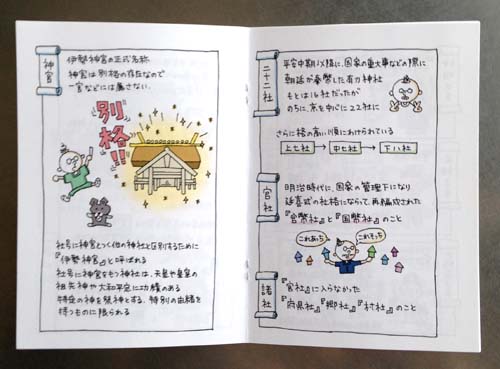 神宮
伊勢神宮の正式名称
神宮は別格の存在なので
一宮などには属さない
別格!!
社号に神宮とつく他の神社と区別するために
『伊勢神宮』と呼ばれる
社号に神宮をもつ神社は、天皇や皇室の
祖先神や大和平定に功績のある
特定の神を祭神とする、特別の由緒を
持つものに限られる
二十二社
平安中期以降に、国家の重大事などの際に
朝廷が奉幣した有力神社
もとは16社だったが
のちに、京を中心に22社に
さらに格の高い順にわけられている
上七社 → 中七社 → 下八社
官社
明治時代に、国家の管理下になり
延喜式の社格にならって再編成された
『官幣社』と『国幣社』のこと
これあっち
これそっち
諸社
『官社』に入らなかった
『府県社』『郷社』『村社』のこと